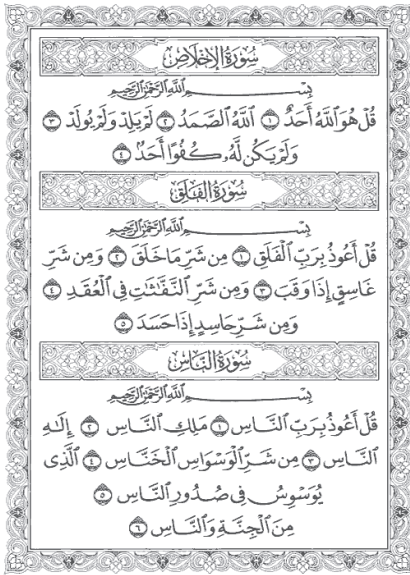 سُورَةُ الإِخْلَاصِ
بِسْمِ اللَّهِ الرَّحْمَٰنِ الرَّحِيمِ
قُلْ هُوَ اللَّهُ أَحَدٌ ١ اللَّهُ الصَّمَدُ ٢ لَمْ يَلِدْ وَلَمْ يُولَدْ ٣
وَلَمْ يَكُن لَّهُۥ كُفُوًا أَحَدٌۢ ٤
سُورَةُ الْفَلَقِ
بِسْمِ اللَّهِ الرَّحْمَٰنِ الرَّحِيمِ
قُلْ أَعُوذُ بِرَبِّ الْفَلَقِ ١ مِن شَرِّ مَا خَلَقَ ٢ وَمِن شَرِّ
غَاسِقٍ إِذَا وَقَبَ ٣ وَمِن شَرِّ النَّفَّٰثَٰتِ فِي الْعُقَدِ ٤
وَمِن شَرِّ حَاسِدٍ إِذَا حَسَدَ ٥
سُورَةُ النَّاسِ
بِسْمِ اللَّهِ الرَّحْمَٰنِ الرَّحِيمِ
قُلْ أَعُوذُ بِرَبِّ النَّاسِ ١ مَلِكِ النَّاسِ ٢ إِلَٰهِ
النَّاسِ ٣ مِن شَرِّ الْوَسْوَاسِ الْخَنَّاسِ ٤ الَّذِى
يُوَسْوِسُ فِى صُدُورِ النَّاسِ ٥
مِنَ الْجِنَّةِ وَالنَّاسِ ٦